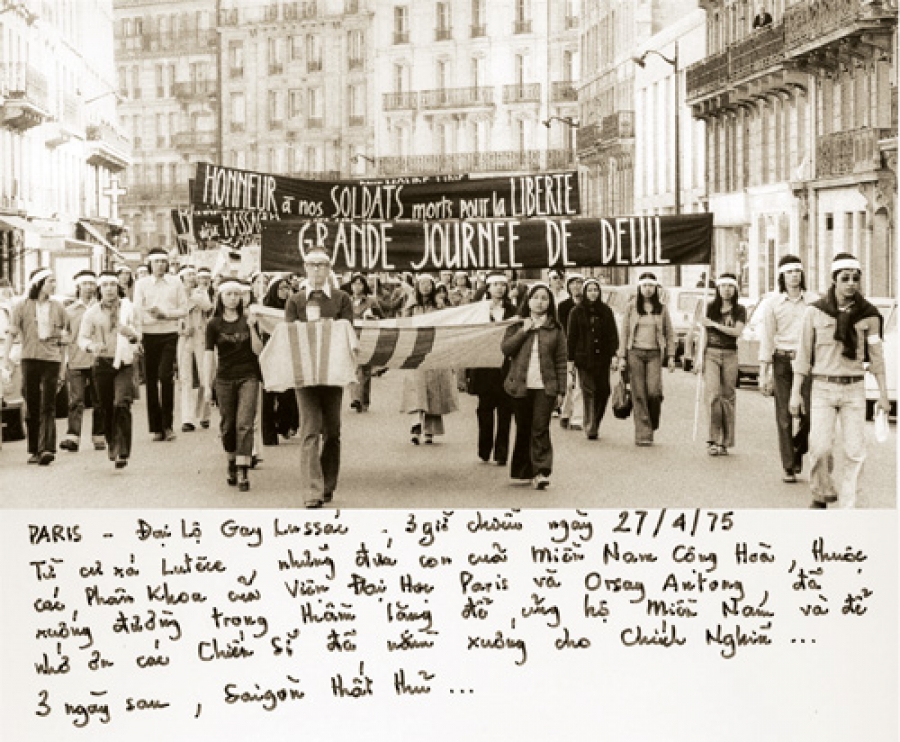 HONNEUR à nos SOLDATS morts pour la LIBERTE
GRANDE JOURNEE DE DEUIL
PARIS - Đại Lộ Gay Lussac, 3 giờ chiều ngày 27/4/75
Từ cư xá Lutèce, những đứa con cuối Miền Nam Cộng Hoà, thuộc
các Phân Khoa của Viện Đại Học Paris và Orsay Antony, đã
xuống đường trong thầm lặng để ủng hộ Miền Nam và để
nhớ ơn các Chiến Sĩ đã nằm xuống cho Chính Nghĩa ...
3 ngày sau, Saigon thất thủ ...